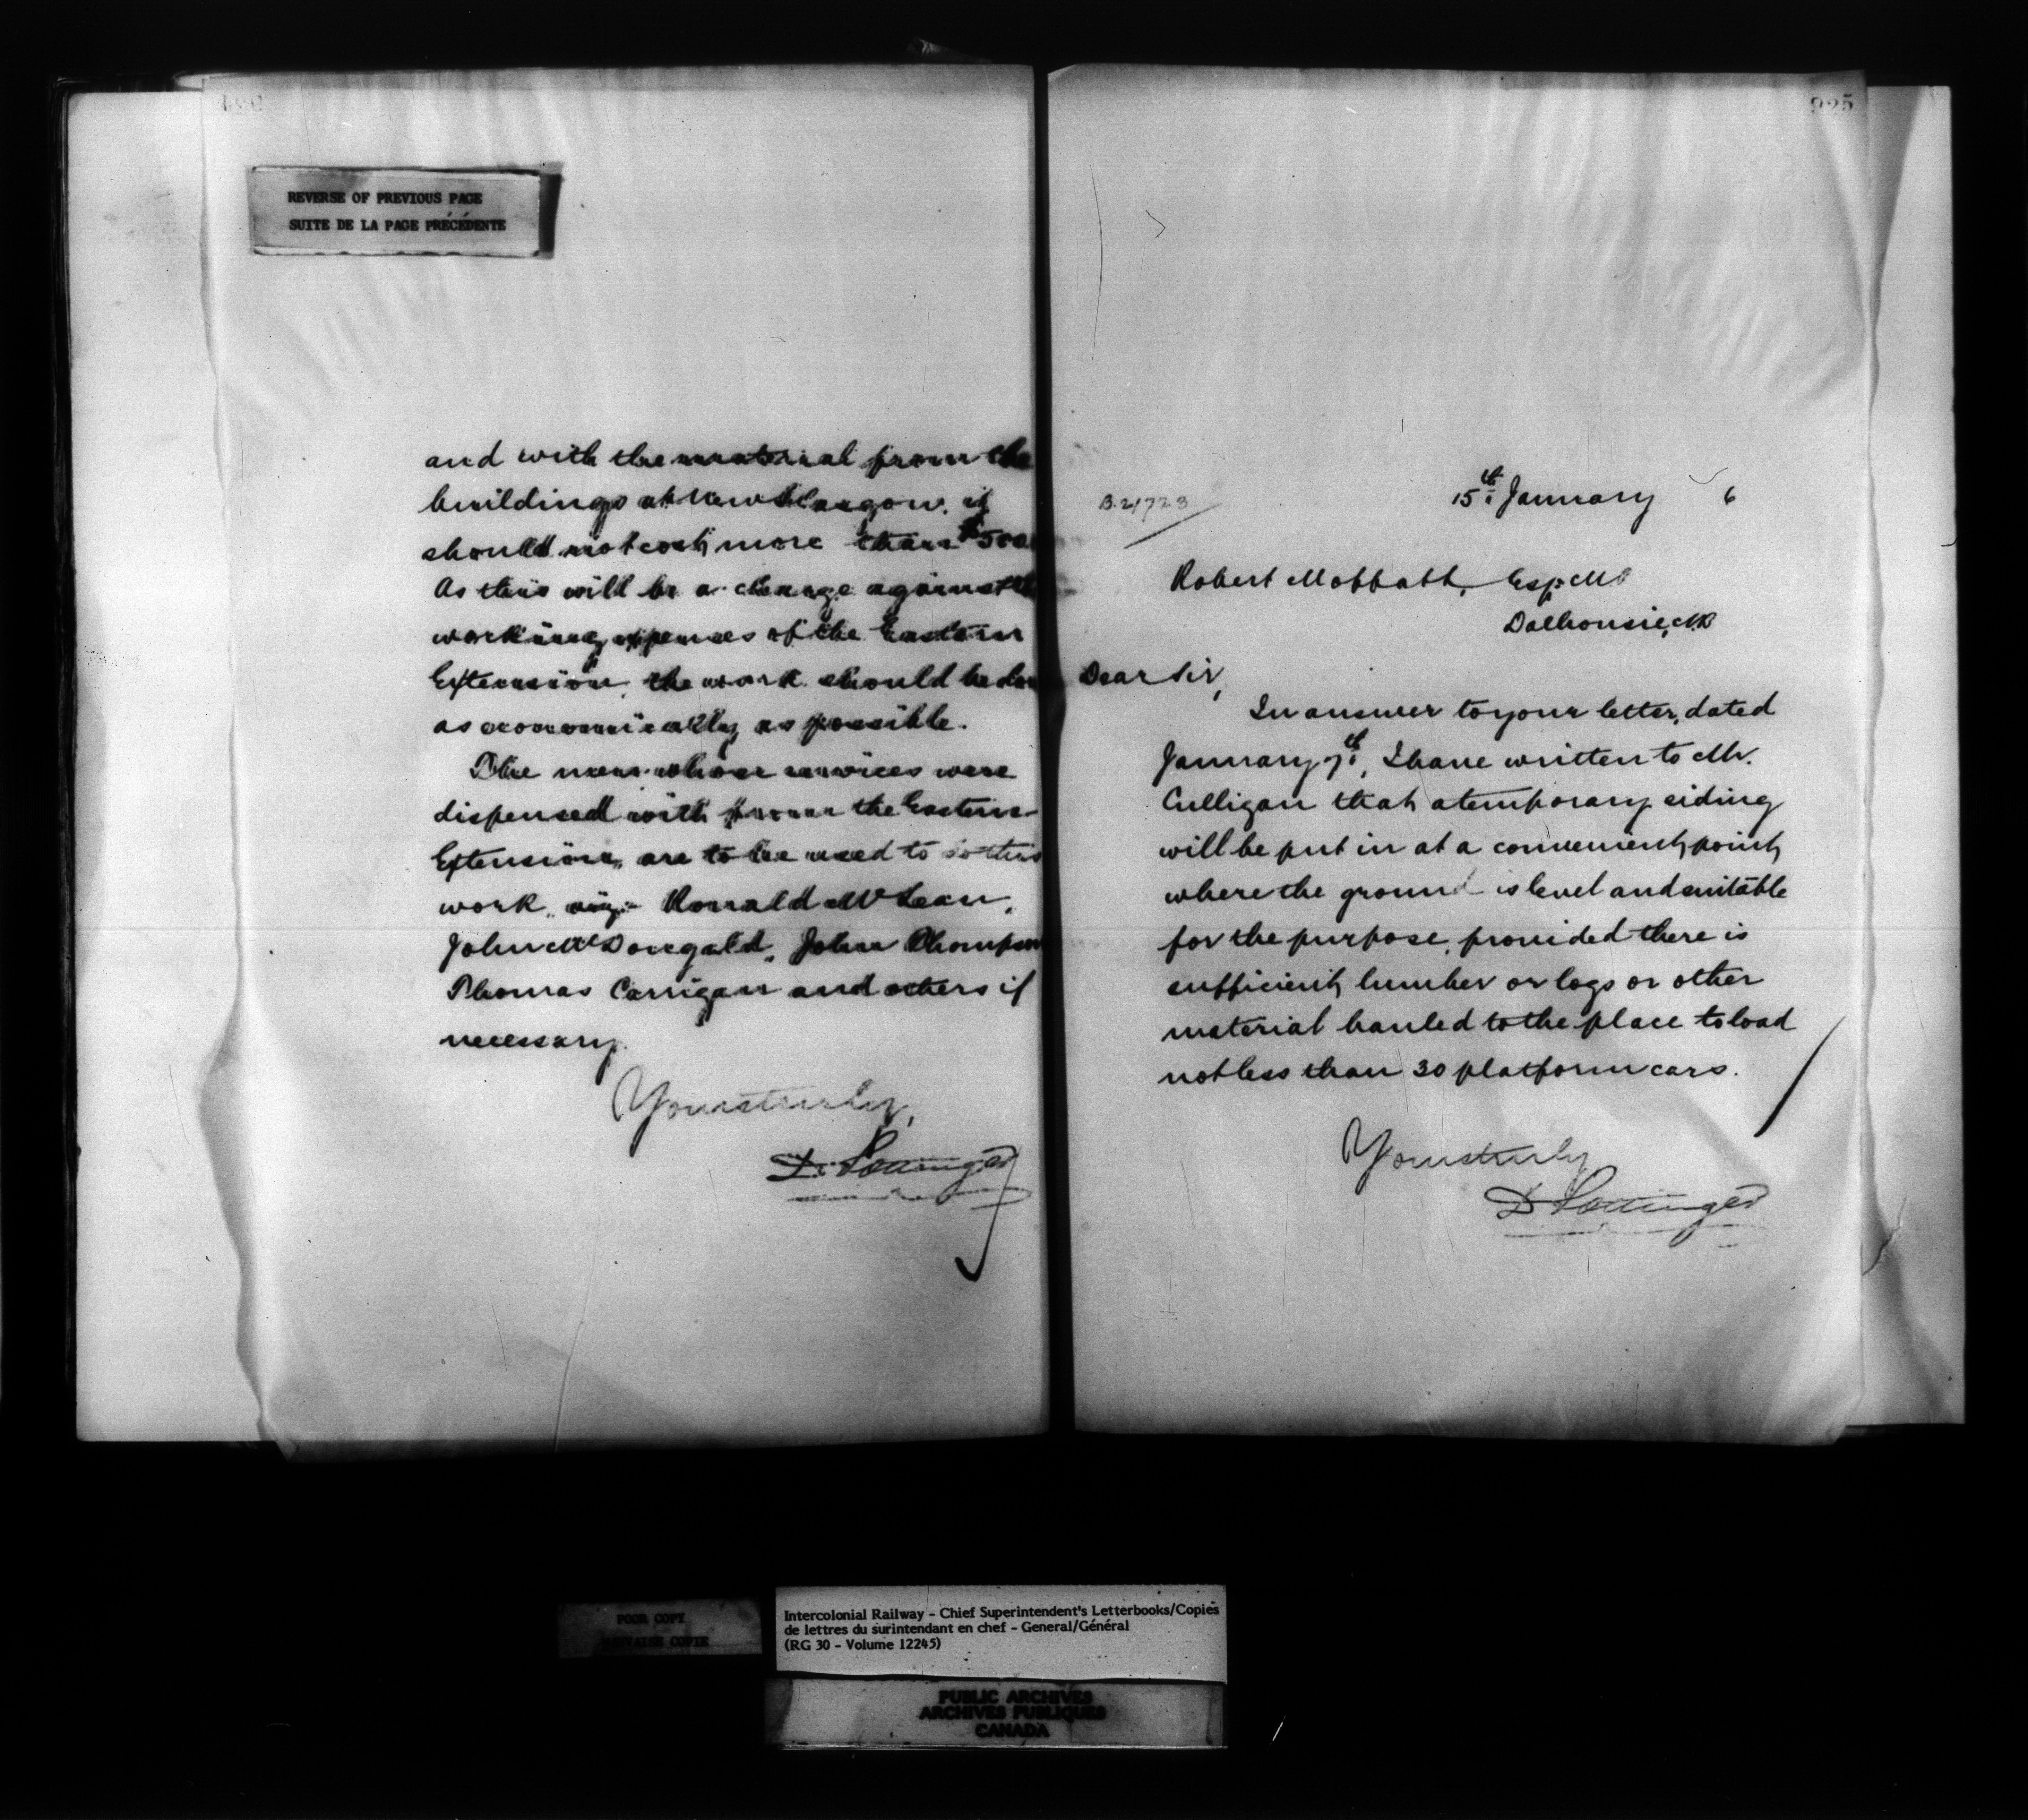 924
REVERSE OF PREVIOUS PAGE
SUITE DE LA PAGE PRÉCÉDENTE
and with the material from the
buildings at New Glasgow, it
should not cost more than $500
As this will be a charge against the
working expenses of the Eastern
Extension, the work should be done
as economically as possible.
The men whose services were
dispensed with from the Eastern
Extension, are to be used to do this
work, viz:- Ronald McLean,
John McDougald, John Thompson
Thomas Carrigan and others if
necessary.
Yours truly,
D. Pottinger
925
B.21723
15th January 6
Robert Moffatt, Esq. M
Dalhousie, N.B
Dear Sir,
In answer to your letter, dated
January 7th, I have written to Mr.
Culligan that a temporary siding
will be put in at a convenient point
where the ground is level and suitable
for the purpose, provided there is
sufficient lumber or logs or other
material hauled to the place to load
not less than 30 platform cars.
Yours truly
D Pottinger
POOR COPY
MAUVAISE COPIE
Intercolonial Railway - Chief Superintendent's Letterbooks/Copies
de lettres du surintendant en chef - General/Général
(RG 30 - Volume 12245)
PUBLIC ARCHIVES
ARCHIVES PUBLIQUES
CANADA